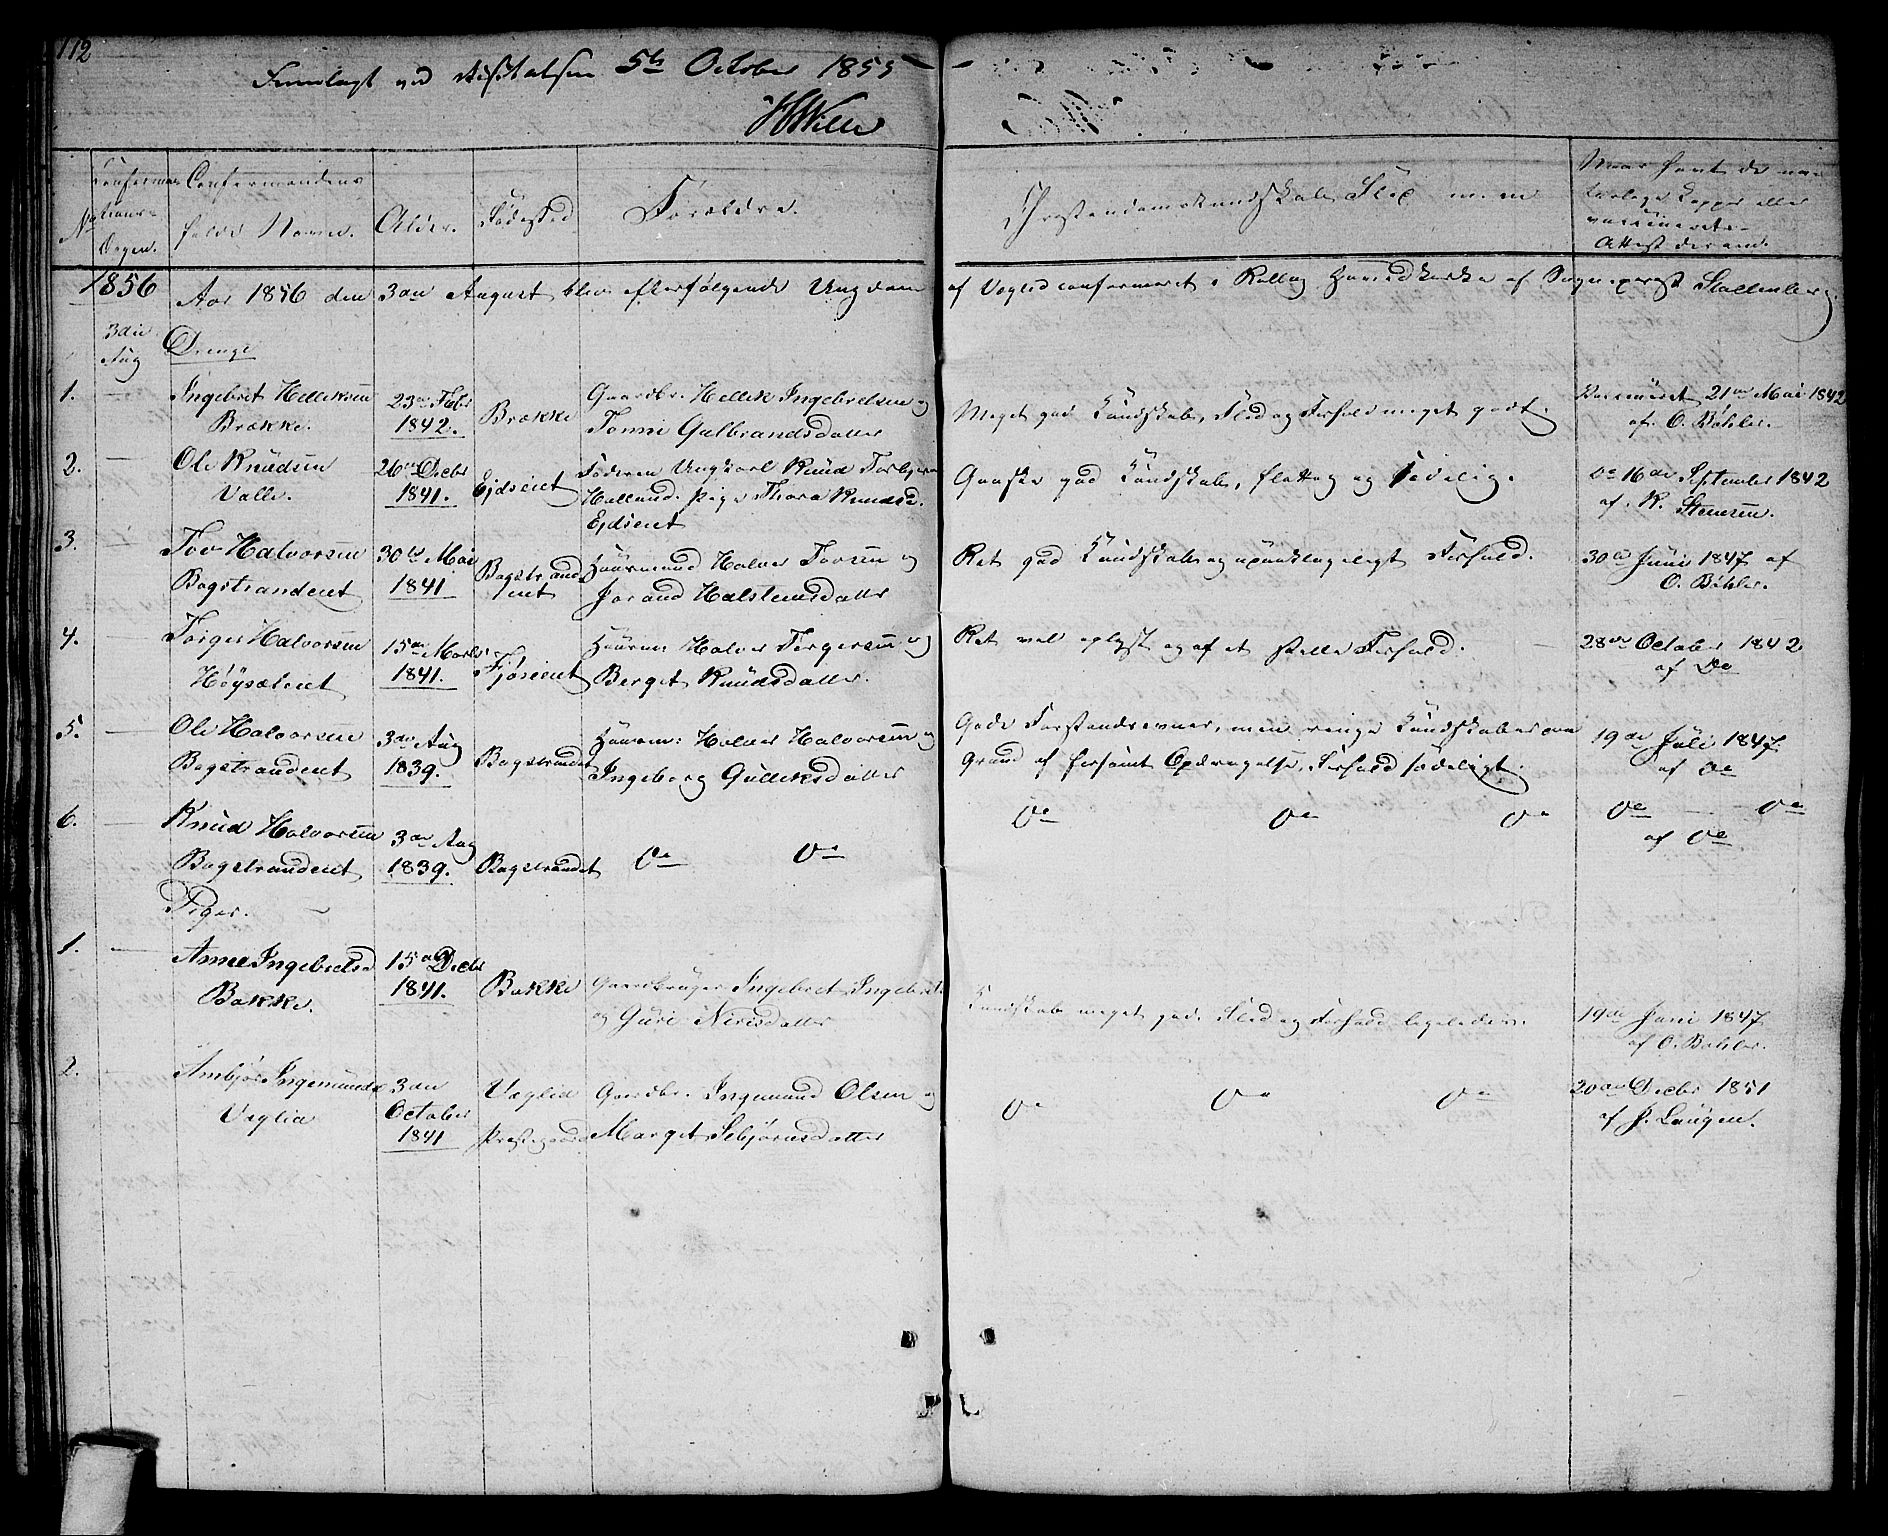 112
Fremlagt ved Visitatsen 5te October 1855
HWille
No
Confirmationsdagen.
Confirmandens fulde Navne.
Alder.
Fødested
Forældre.
Christendomskundskab, Flid m. m.
Naar havt de naturlige Kopper eller vaccineret
Attest derom.
1856
Aar 1856 den 3die August blev efterfølgende Ungdom af Veglid confirmeret i Rollag Hovedkirke af Sognepræst Stoltenberg.
3die Aug
Drenge
1. Ingebret Helleksen Brække. 23de Febr 1842. Brække Gaardbr. Hellek Ingebretsen og Tonne Gulbrandsdatter
Meget god Kundskab, Flid og Forhold meget godt. Vaccineret 21de Mai 1842 af O. Bøhler.
2. Ole Knudsen Valle. 26de Decbr 1841. Ejdseiet Faderen Ungkarl Knud Torbjørns Holland. Pige Thora Knudsd. Ejdseiet
Ganske god Kundskab, flittig og sædelig. do 16de September 1842 af K. Steensen.
3. Tov Halvorsen Bogstrandeiet 30te Mai 1841 Bogstrandeiet Huusmand Halvor Tovsen og Jorand Halstensdatter
Ret god Kundskab og upaaklageligt Forhold. 30te Juni 1847 af O. Bøhler.
4. Torger Halvorsen Høysæteiet 15de Marts 1841. Fjøseiet Huusm: Halvor Torgersen og Berget Knudsdatter.
Ret vel oplyst og af et stille Forhold. 28de October 1842 af Do
5. Ole Halvorsen Bogstrandeiet 3die Aug 1839. Bogstrandeiet Huusm: Halvor Halvorsen og Ingeborg Gulleksdatter
Gode Forstandsevner, men ringe Kundskaber paa Grund af forsømt Opdragelse, Forhold sædeligt. 19de Juli 1847. af Do
6. Knud Halvorsen Bogstrandeiet 3die Aug 1839. Bogstrandeiet Do Do
Do Do Do Do Do af Do
Piger.
1. Anne Ingebretsd Bakke. 15de Decbr 1841. Bakke Gaardbruger Ingebret Ingebrets og Guri Nirisdatter
Kundskab meget god. Flid og Forhold ligeledes. 19de Juni 1847 af O. Bøhler.
2. Ambjør Ingemundsd Veglid 3die October 1841 Veglid Præstegaard Gaardbr. Ingemund Olsen og Marget Sebjørnsdatter
Do Do Do 20de Decbr 1851 af J. Laugen.